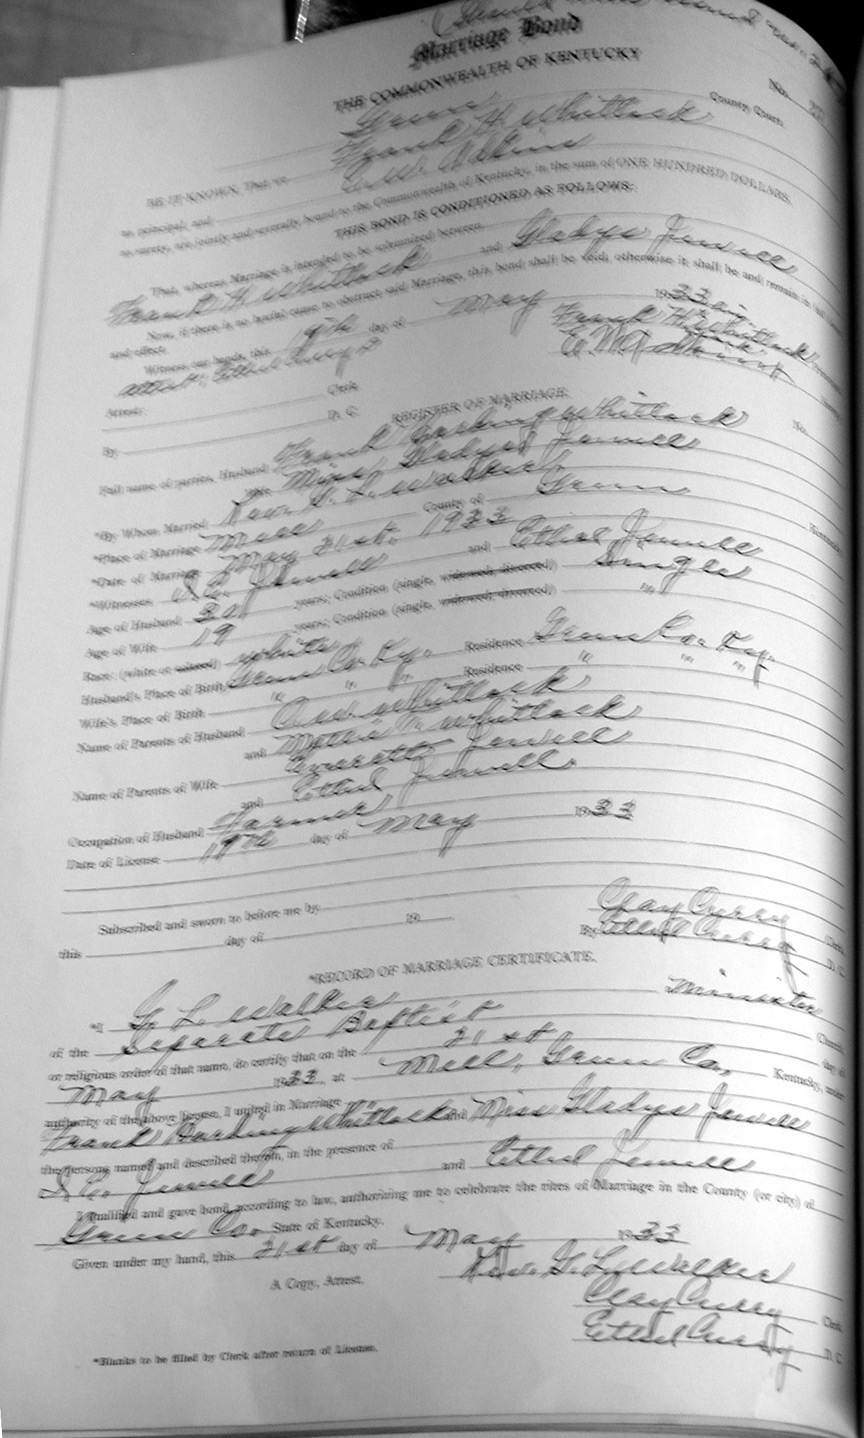 Marriage Bond
THE COMMONWEALTH OF KENTUCKY
No.
Green County Court.
BE IT KNOWN, That we Frank H. Whitlock
as principal, and E. W. Adkins
as surety, are jointly and severally bound to the Commonwealth of Kentucky, in the sum of ONE HUNDRED DOLLARS.
THIS BOND IS CONDITIONED AS FOLLOWS:
That, whereas Marriage is intended to be solemnized between
Frank H. Whitlock and Gladys Jewell
Now, if there is no lawful cause to obstruct said Marriage, this bond shall be void; otherwise it shall be and remain in full force
and effect.
Witness our hands, this 19th day of May 1933
Attest: Ethel Curry Frank H. Whitlock Principal
Attest: Clerk E. W. Adkins Surety
By D. C.
REGISTER OF MARRIAGE. No.
Full name of parties, Husband Frank Whitlock
Wife Miss Gladys Jewell
*By Whom Married Rev. G. L. Walker
*Place of Marriage Mell County of Green Kentucky
*Date of Marriage May 21st, 1933
*Witnesses Jewell and Ethel Jewell
Age of Husband years; Condition (single, widowed, divorced) Single
Age of Wife 19 years; Condition (single, widowed, divorced) "
Race: (white or colored) white
Husband's Place of Birth Green Co. Ky. Residence Green Co. Ky.
Wife's Place of Birth " " " Residence " " "
Name of Parents of Husband Whitlock
and Whitlock
Name of Parents of Wife Everett Jewell
and Ethel Jewell
Occupation of Husband Farmer
Date of License 19th day of May 1933
Subscribed and sworn to before me by Clay Curry Clerk
this day of 19 By Ethel Curry D. C.
*RECORD OF MARRIAGE CERTIFICATE.
*I G. L. Walker Minister
of the Separate Baptist Church,
or religious order of that name, do certify that on the 21st day of
May 1933, at Mell, Green Co. Kentucky, under
authority of the above license, I united in Marriage
Frank Whitlock and Miss Gladys Jewell
the persons named and described therein, in the presence of
Jewell and Ethel Jewell
I qualified and gave bond, according to law, authorizing me to celebrate the rites of Marriage in the County (or city) of
Green Co. State of Kentucky.
Given under my hand, this 21st day of May 1933
Rev. G. L. Walker
A Copy, Attest. Clay Curry Clerk
Ethel Curry D. C.
*Blanks to be filled by Clerk after return of License.